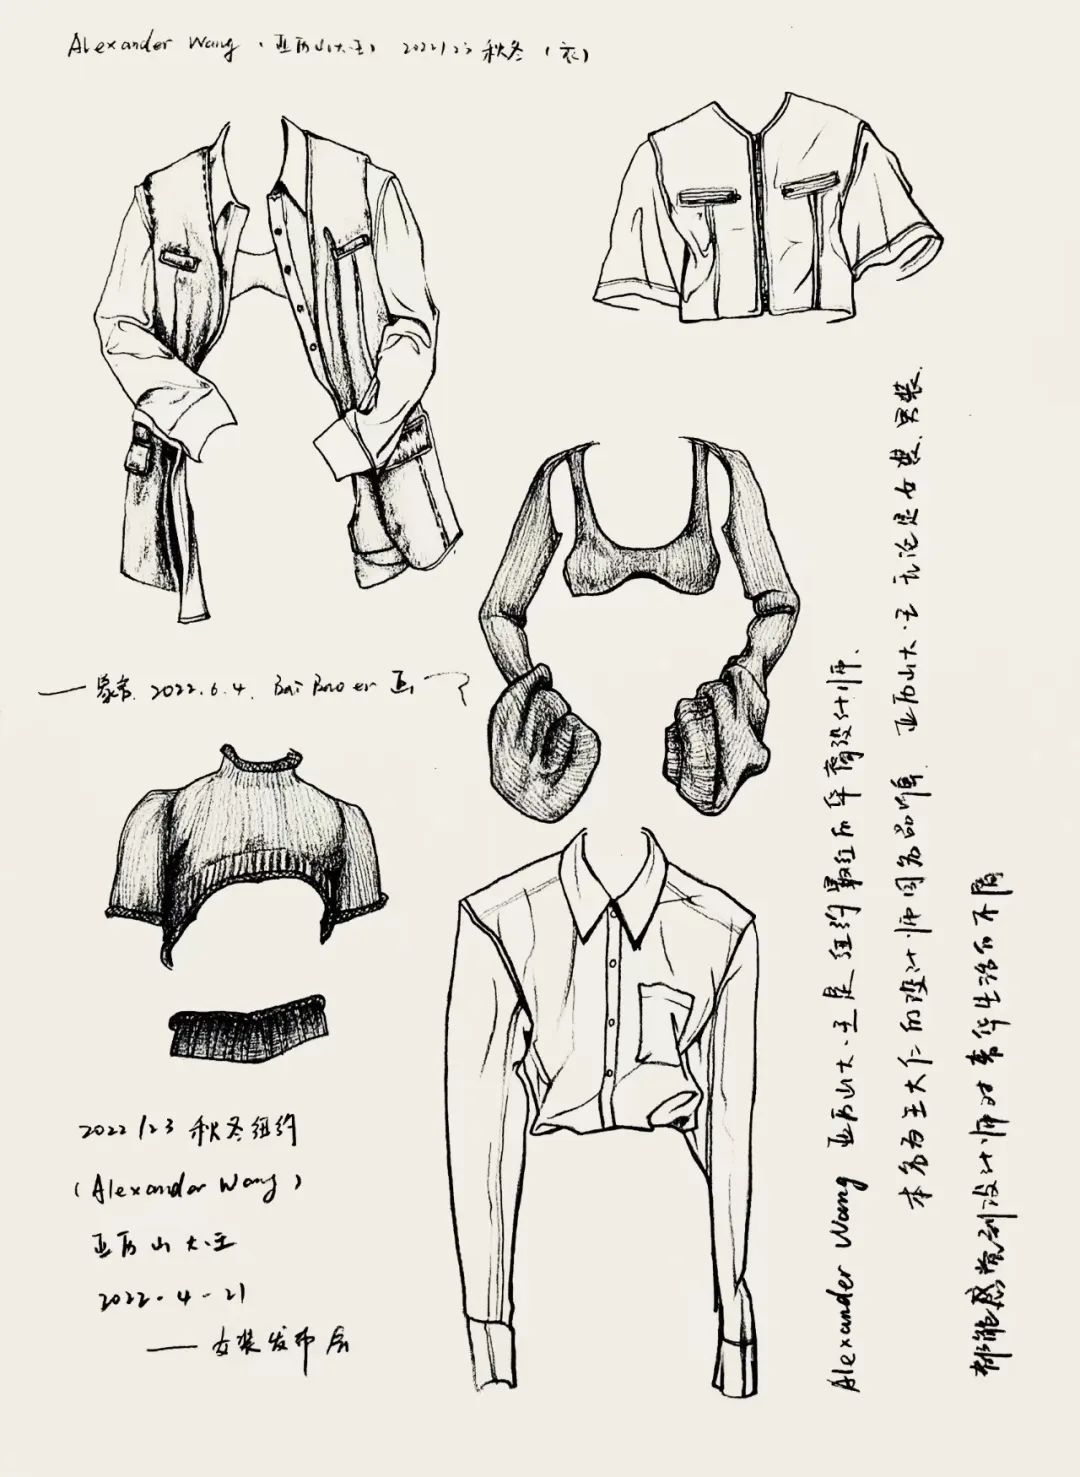 Alexander Wang（亚历山大·王）2022/23 秋冬（衣）
2022.6.4. Bai Bao er 画
2022/23 秋冬纽约
（Alexander Wang）
亚历山大·王
2022·4·21
——女装发布会
Alexander Wang 亚历山大·王是纽约最红的华裔设计师.
本名为王大仁的设计师同名品牌 亚历山大·王 无论是女装.男装.
都能感觉到设计师对奢华生活的不屑